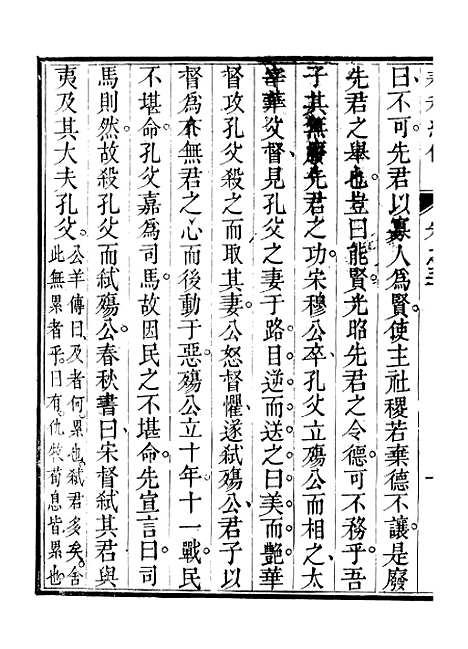 曰不可先君以寡人為賢使主社稷若棄德不讓是廢
先君之舉也豈曰能賢光昭先君之令德可不務乎吾
子其無廢先君之功宋穆公卒孔父立殤公而相之太
宰華父督見孔父之妻于路目逆而送之曰美而豔華
督攻孔父殺之而取其妻公怒督懼遂弒殤公君子以
督為有無君之心而後動于惡殤公立十年十一戰民
不堪命孔父嘉為司馬故因民之不堪命先宣言曰司
馬則然故殺孔父而弒殤公春秋書曰宋督弒其君與
夷及其大夫孔父公羊傳曰及者何累也弒君多矣舍
此無累者乎曰有仇牧荀息皆累也